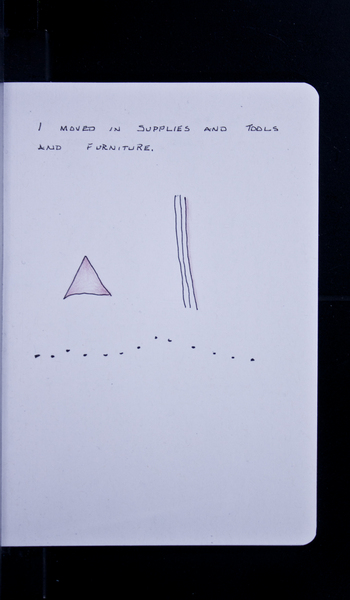 I MOVED IN SUPPLIES AND TOOLS
AND FURNITURE.